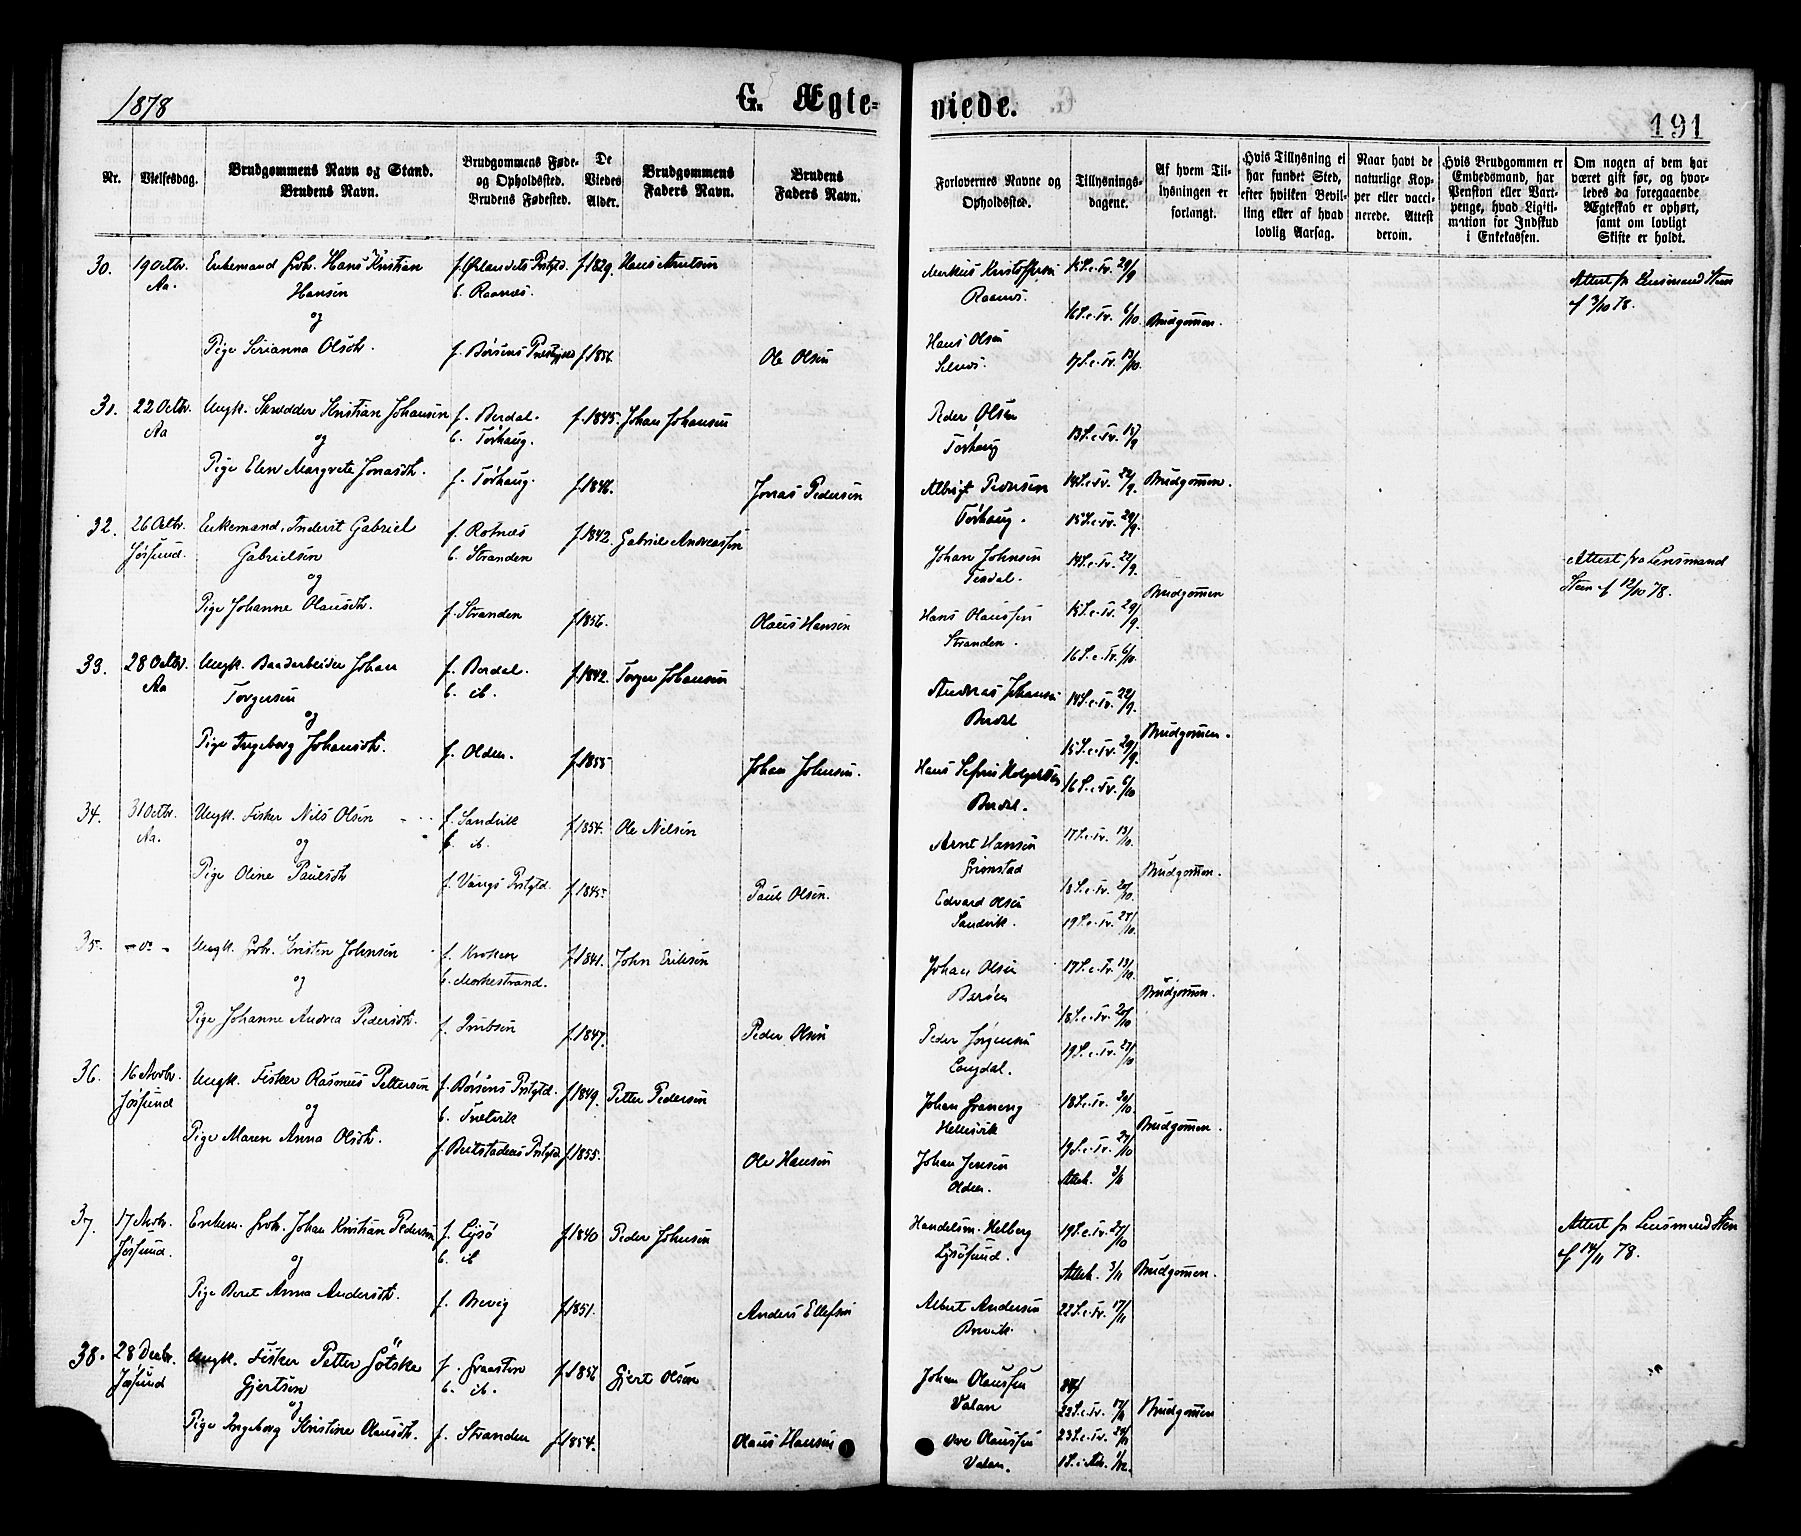 1878
G. Ægte=
viede.
191
Nr.
Vielsesdag.
Brudgommens Navn og Stand.
Brudens Navn.
Brudgommens Føde-
og Opholdssted.
Brudens Fødested.
De
Viedes
Alder.
Brudgommens
Faders Navn.
Brudens
Faders Navn.
Forlovernes Navne og
Opholdssted.
Tillysnings-
dagene.
Af hvem Til-
lysningen er
forlangt.
Hvis Tillysning ei
har fundet Sted,
efter hvilken Bevil-
ling eller af hvad
lovlig Aarsag.
Naar havt de
naturlige Kop-
per eller vacci-
nerede. Attest
derom.
Hvis Brudgommen er
Embedsmand, har
Pension eller Vart-
penge, hvad Ligiti-
mation for Indskud
i Enkekassen.
Om nogen af dem har
været gift før, og hvor-
ledes da foregaaende
Ægteskab er ophørt,
samt om lovligt
Skifte er holdt.
30.
19 Octbr.
Aa.
Enkemand Hans Kristian
Hansen
og
Pige Serianna Olsdtr.
f. Ørlandets Prstgd.
b. Raanæs.
f. Børsens
f. 1829.
f. 1856.
Ole Olsen
Markus Kristoffersen
Raanæs.
Hans Olsen
15 S. e. Tr. 29/9
16 S. e. Tr. 6/10.
17 S. e. Tr. 13/10.
Brudgommen.
Attest fra Lensmand Steen
af 3/10 78.
31.
22 Octbr.
Aa
Ungk. Skrædder Kristian Johansen
og
Pige Elen Margrete Jonasdtr.
f. Berdal.
b. Tørhaug.
f. Tørhaug.
f. 1845.
f. 1846.
Johan Johansen
Jonas Pedersen
Peder Olsen
Tørhaug
Albrigt Pedersen
Tørhaug.
13 S. e. Tr. 15/9
14 S. e. Tr. 22/9.
15 S. e. Tr. 29/9.
Brudgommen.
32.
26 Octbr.
Jøssund.
Enkemand, Inderst Gabriel
Gabrielsen
og
Pige Johanne Olausdtr.
f. Rotnæs
b. Stranden
f. Stranden
f. 1842.
f. 1856.
Gabriel Andreassen
Olaus Hansen
Johan Johnsen
Hans Olaussen
Stranden.
14 S. e. Tr. 22/9.
15 S. e. Tr. 29/9.
16 S. e. Tr. 6/10.
Brudgommen
Attest fra Lensmand
Steen af 12/10 78.
33.
28 Octbr.
Aa
Ungk. Baadarbeider Johan
Torgersen
og
Pige Ingeborg Johansdtr.
f. Berdal.
b. ib.
f. Olden.
f. 1842.
f. 1855
Torger Johansen
Johan Johnsen.
Andreas Johansen
Berdal
Hans Sefrin Holgersen
Berdal.
14 S. e. Tr. 22/9.
15 S. e. Tr. 29/9.
16 S. e. Tr. 6/10
Brudgommen.
34.
31 Octbr.
Aa.
Ungk. Fisker Nils Olsen
og
Pige Oline Paulsdtr
f. Sandvik
b. ib.
f. Vangs Prstgd.
f. 1854.
f. 1845.
Ole Nilsen
Paul Olsen.
Arnt Hansen
Grimstad
Edvard Olsen
Sandvik.
17 S. e. Tr. 13/10.
18 S. e. Tr. 20/10.
19 S. e. Tr. 27/10.
Brudgommen.
35.
- do -
Ungk. Kristen Johnsen
og
Pige Johanne Andrea Pedersdtr.
f. Kroken
b. Morkestrand.
f. 1841.
f. 1847.
John Eriksen
Peder Olsen
Johan Olsen
Peder Jørgensen
Langdal.
17 S. e. Tr. 13/10.
18 S. e. Tr. 20/10
19 S. e. Tr. 27/10
Brudgommen.
36.
16 Novbr.
Jøssund
Ungk. Fisker Rasmus Pettersen
og
Pige Maren Anna Olsdtr.
f. Børsens Prstgtd.
f. Beitstadens Prstgtd.
f. 1849.
f. 1855.
Petter Pedersen
Ole Hansen
Johan
Hellesvik
Johan Jensen
Olden.
18 S. e. Tr. 20/10
19 S. e. Tr. 27/10
Alleh. 3/11
Brudgommen.
37.
17 Novbr.
Jøssund.
Enkem. Johan Kristian Pedersen
og
Pige Beret Anna Andersdtr.
f. Lysø
b. ib
f. Brevig
f. 1840
f. 1851.
Peder Johnsen
Anders Ellefsen
Handelsm. Helberg
Lysøsund.
Albert Andersen
Brevik.
19 S. e. Tr. 27/10
Alleh. 3/11
22 S. e. Tr. 17/11
Brudgommen.
Attest fra Lensmand Steen
af 14/11 78.
38.
28 Decbr.
Jøssund
Ungk. Fisker Petter
Gjertsen
og
Pige Ingeborg Kristine Olausdtr.
f. Graasten
b. ib.
f. Stranden
f. 1856
f. 1854.
Gjert Olsen
Olaus Hansen
Johan Olaussen
Valan
Ove Olaussen
Valan.
22 S. e. Tr. 17/11
23 S. e. Tr. 24/11
1 S. i Adv. 1/12.
Brudgommen